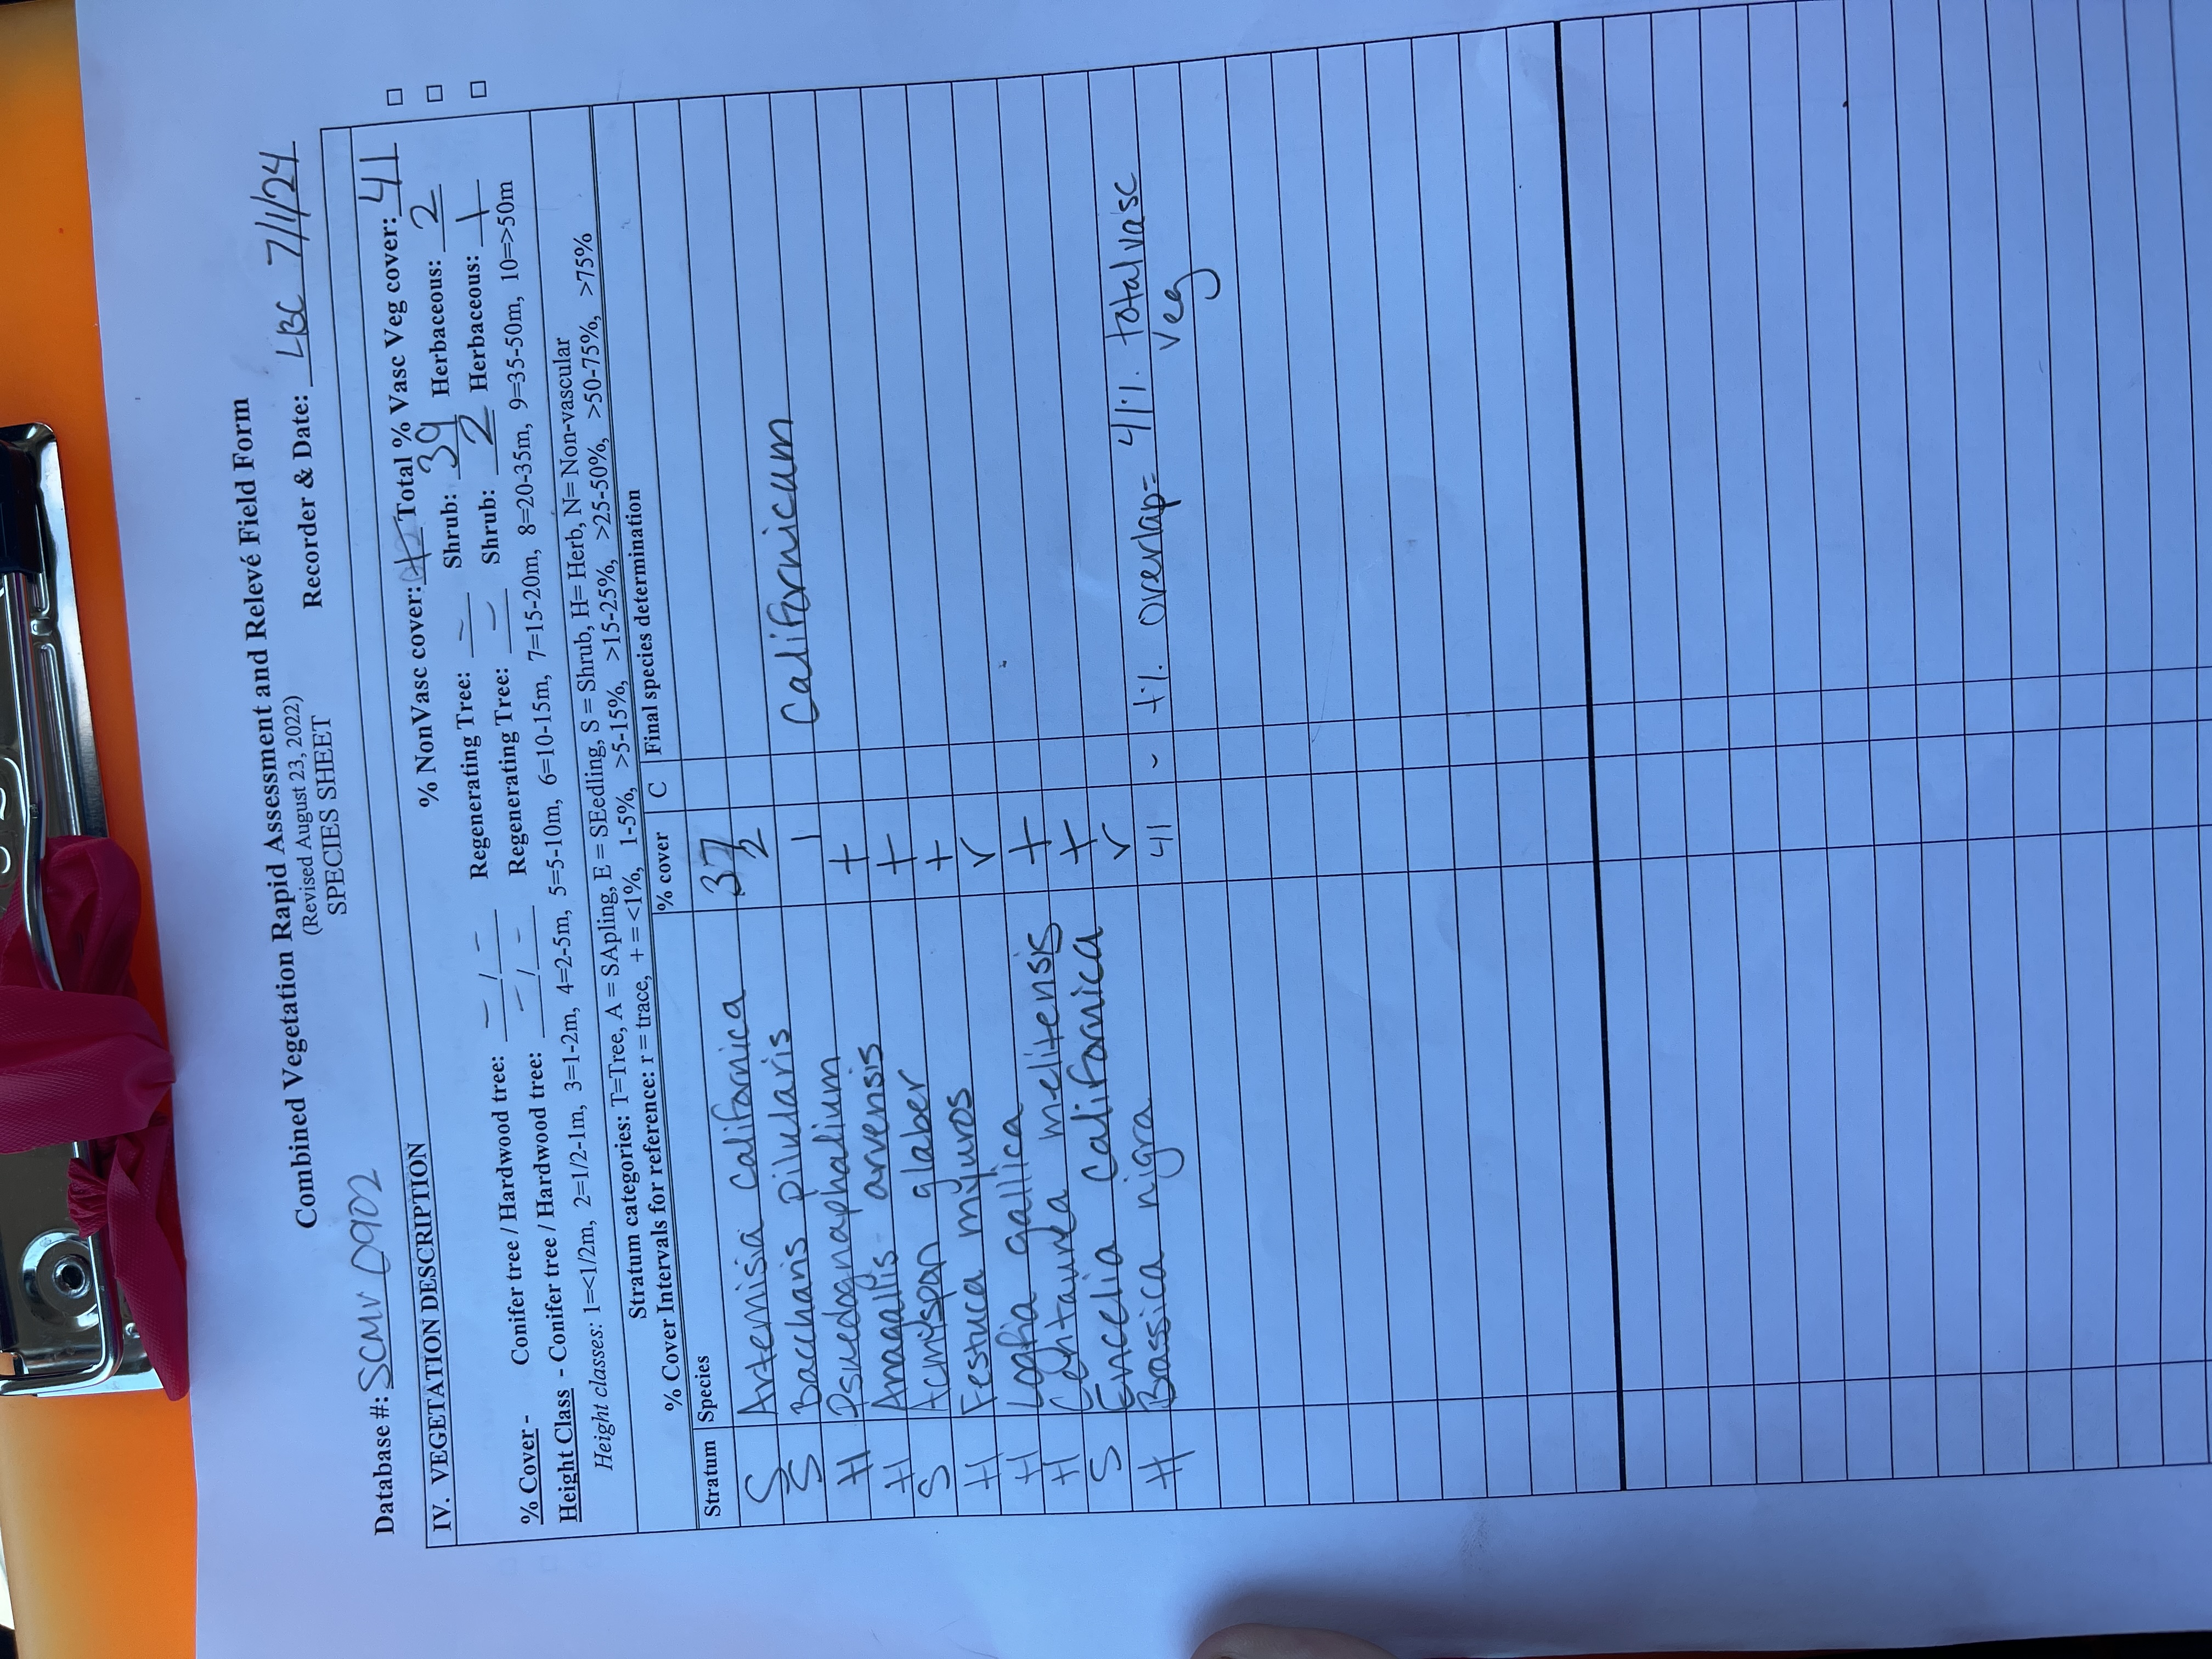 Combined Vegetation Rapid Assessment and Relevé Field Form
(Revised August 23, 2022)
SPECIES SHEET
Database #: SCMV 0902 Recorder & Date: LBC 7/1/24
IV. VEGETATION DESCRIPTION
% NonVasc cover: Total % Vasc Veg cover: 41
% Cover - Conifer tree / Hardwood tree: - / - Regenerating Tree: - Shrub: 39 Herbaceous: 2
Height Class - Conifer tree / Hardwood tree: - / - Regenerating Tree: - Shrub: 2 Herbaceous: 1
Height classes: 1=<1/2m, 2=1/2-1m, 3=1-2m, 4=2-5m, 5=5-10m, 6=10-15m, 7=15-20m, 8=20-35m, 9=35-50m, 10=>50m
Stratum categories: T=Tree, A = SApling, E = SEedling, S = Shrub, H= Herb, N= Non-vascular
% Cover Intervals for reference: r = trace, + = <1%, 1-5%, >5-15%, >15-25%, >25-50%, >50-75%, >75%
Stratum Species % cover C Final species determination
S Artemisia californica 37
S Baccharis pilularis 2
H Psuedognaphalium 1 Californicum
H Anagallis arvensis +
S Acmispon glaber +
H Festuca myuros +
H Logfia gallica r
H Centaurea melitensis +
S Encelia californica +
H Bassica nigra r
41 - +%. overlap= 41%. total vasc
veg